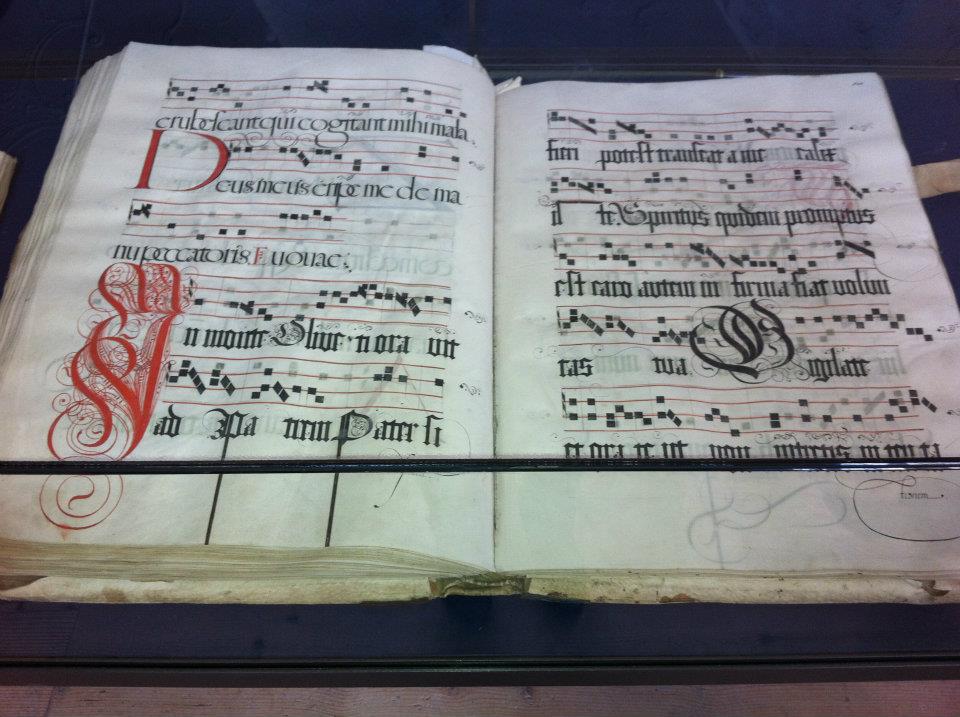 erubescant qui cogitant mihi mala.
Deus meus eripe me de ma
nu peccatoris. Euouae.
In monte Oliveti ora vit
ad Pa trem Pater si
fieri potest transeat a me calix
is te. Spiritus quidem promptus
est caro autem in firma fiat volun
tas tua. Vigilate
et ora te ut non intretis in ten ta
tionem